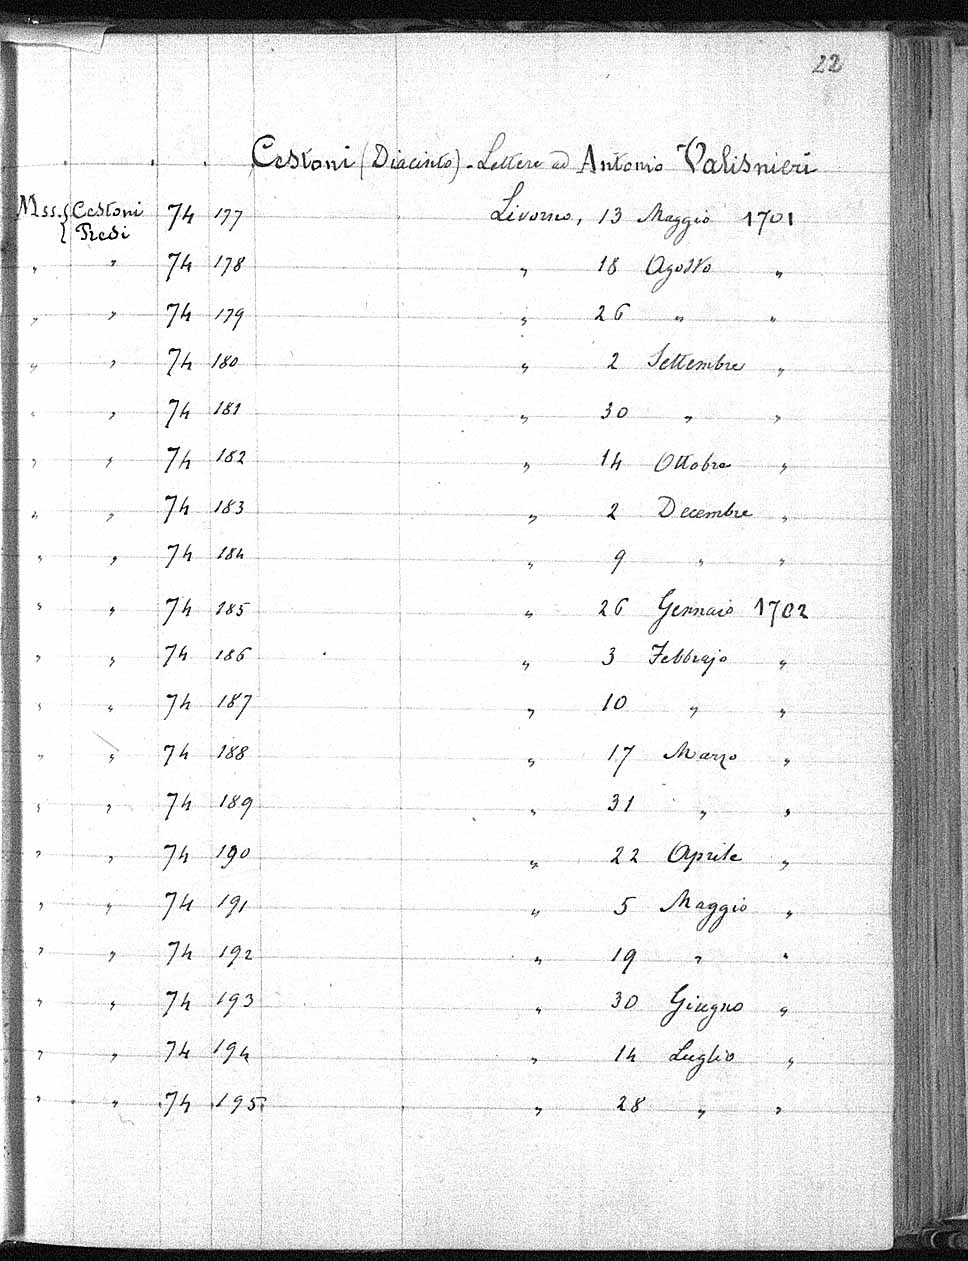 22
Cestoni (Diacinto) - Lettere ad Antonio Valisnieri
Mss. { Cestoni Redi 74 177 Livorno, 13 Maggio 1701
" " 74 178 " 18 Agosto "
" " 74 179 " 26 " "
" " 74 180 " 2 Settembre "
" " 74 181 " 30 " "
" " 74 182 " 14 Ottobre "
" " 74 183 " 2 Decembre "
" " 74 184 " 9 " "
" " 74 185 " 26 Gennaio 1702
" " 74 186 " 3 Febbrajo "
" " 74 187 " 10 " "
" " 74 188 " 17 Marzo "
" " 74 189 " 31 " "
" " 74 190 " 22 Aprile "
" " 74 191 " 5 Maggio "
" " 74 192 " 19 " "
" " 74 193 " 30 Giugno "
" " 74 194 " 14 Luglio "
" " 74 195 " 28 " "